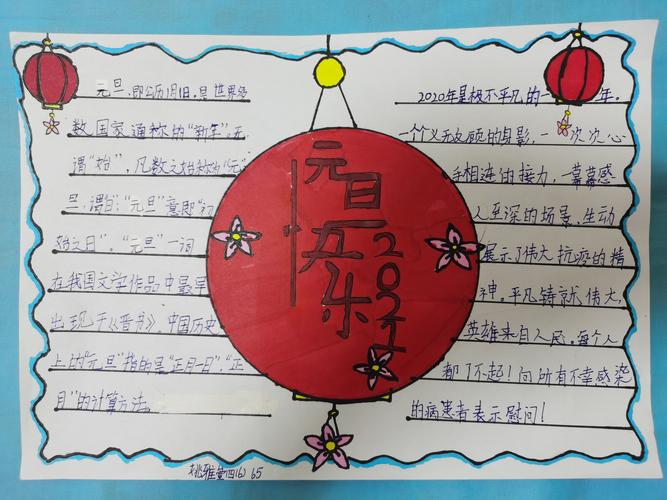 元旦，即公历1月1日，是世界多
数国家通称的“新年”。元
谓“始”，凡数之始称为“元”
旦，谓“日”；“元旦”意即“初
始之日”。“元旦”一词
在我国文学作品中最早
出现于《晋书》。中国历史
上的“元旦”指的是“正月一日”，“正
月”的计算方法，
元旦
快乐
2021
2020年是极不平凡的一年。
一个个义无反顾的身影，一次次心
手相连的接力，一幕幕感
人至深的场景，生动
展示了伟大抗疫的精
神。平凡铸就伟大，
英雄来自人民。每个人
都了不起！向所有不幸感染
的病患者表示慰问！
四(6) 65